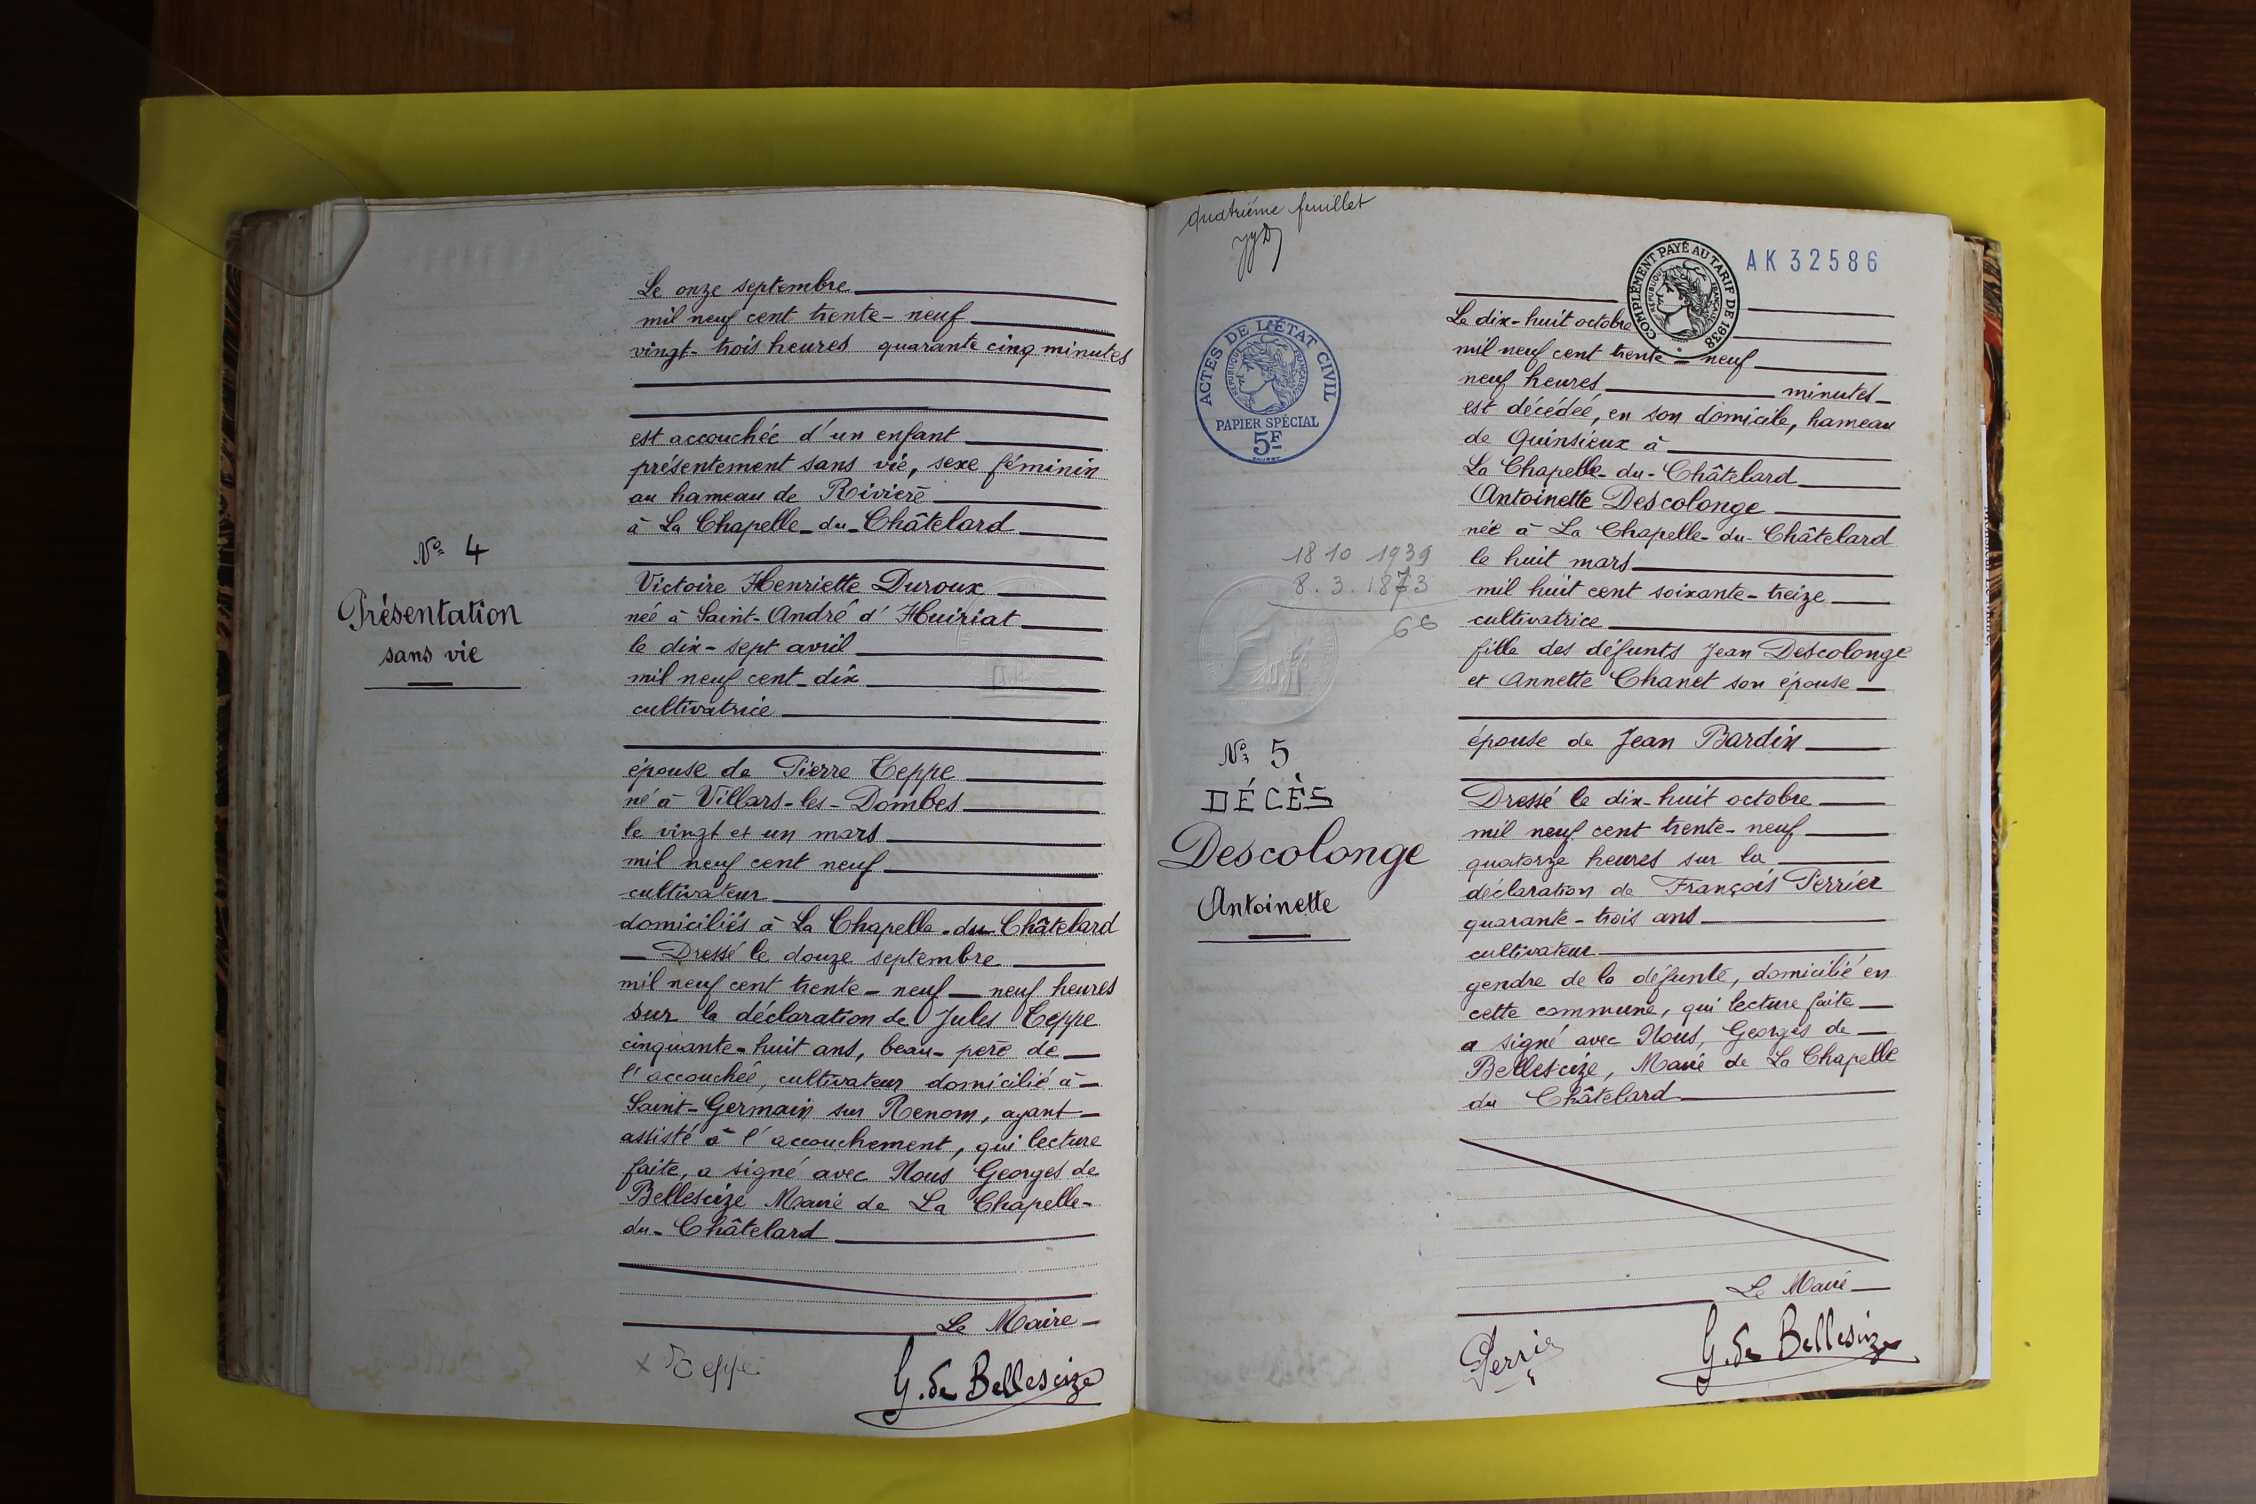 Le onze septembre
mil neuf cent trente-neuf
vingt-trois heures quarante cinq minutes
est accouchée d'un enfant
présentement sans vie, sexe féminin
au hameau de Rivière
à La Chapelle-du-Châtelard
Nº 4
Présentation
sans vie
Victoire Henriette Duroux
née à Saint-André d'Huiriat
le dix-sept avril
mil neuf cent dix
cultivatrice
épouse de Pierre Teppe
né à Villars-les-Dombes
le vingt et un mars
mil neuf cent neuf
cultivateur
domiciliés à La Chapelle-du-Châtelard
Dressé le douze septembre
mil neuf cent trente-neuf neuf heures
sur la déclaration de Jules Teppe
cinquante-huit ans, beau-père de
l'accouchée, cultivateur domicilié à
Saint-Germain sur Renom, ayant
assisté à l'accouchement, qui lecture
faite, a signé avec Nous Georges de
Bellescize Maire de La Chapelle-
du-Châtelard
Le Maire
Teppe
G. de Bellescize
quatrième feuillet
AK 32586
COMPLÉMENT PAYÉ AU TARIF DE 1938
RÉPUBLIQUE FRANÇAISE
ACTES DE L'ÉTAT CIVIL
RÉPUBLIQUE FRANÇAISE
PAPIER SPÉCIAL
5F
Le dix-huit octobre
mil neuf cent trente-neuf
neuf heures minutes
est décédée, en son domicile, hameau
de Quinsieux à
La Chapelle-du-Châtelard
Antoinette Descolonge
née à La Chapelle-du-Châtelard
le huit mars
mil huit cent soixante-treize
cultivatrice
fille des défunts Jean Descolonge
et Annette Chanet son épouse
18 10 1939
8.3.1873
66
épouse de Jean Bardin
Nº 5
DÉCÈS
Descolonge
Antoinette
Dressé le dix-huit octobre
mil neuf cent trente-neuf
quatorze heures sur la
déclaration de François Perrier
quarante-trois ans
cultivateur
gendre de la défunte, domicilié en
cette commune, qui lecture faite
a signé avec Nous, Georges de
Bellescize, Maire de La Chapelle
du Châtelard
Le Maire
Perrier
G. de Bellescize